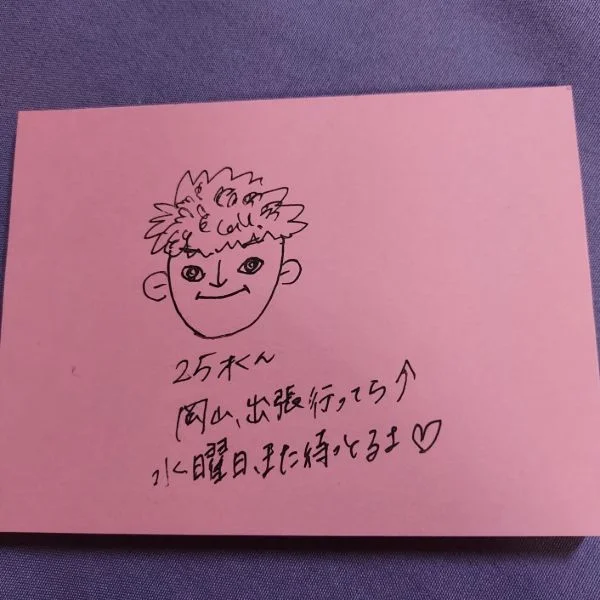 25木くん
岡山、出張行ってら↑
水曜日、また待っとるよ♡